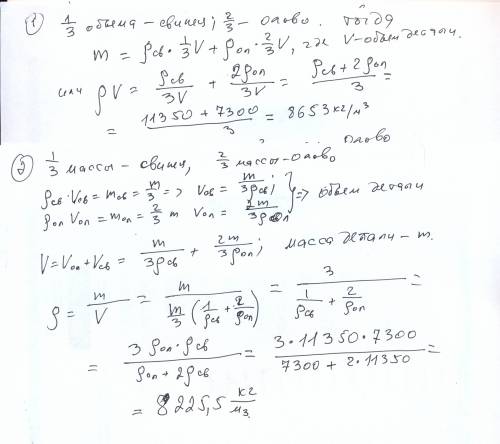 1) 1/3 объема – свинец; 2/3 – олово. Тогда
m = ρсв · 1/3 V + ρол · 2/3 V, где V – объем детали.
или ρV = ρсв/3V + 2ρол/3V = (ρсв + 2ρол)/3 =
= (11350 + 7300)/3 = 8653 кг/м³
2) 1/3 массы – свинец, 2/3 массы – олово
ρсв · Vов = mов = m/3 => Vов = m/3ρсв;
ρол Vол = mол = 2/3 m Vол = 2m/3ρол } => объем детали
V = Vол + Vсв = m/3ρсв + 2m/3ρол; масса детали – m.
ρ = m/V = m/(m/3 (1/ρсв + 2/ρол)) = 3/(1/ρсв + 2/ρол) =
= 3ρол · ρсв/(ρол + 2ρсв) = 3·11350·7300/(7300 + 2·11350) =
= 8225,5 кг/м3.